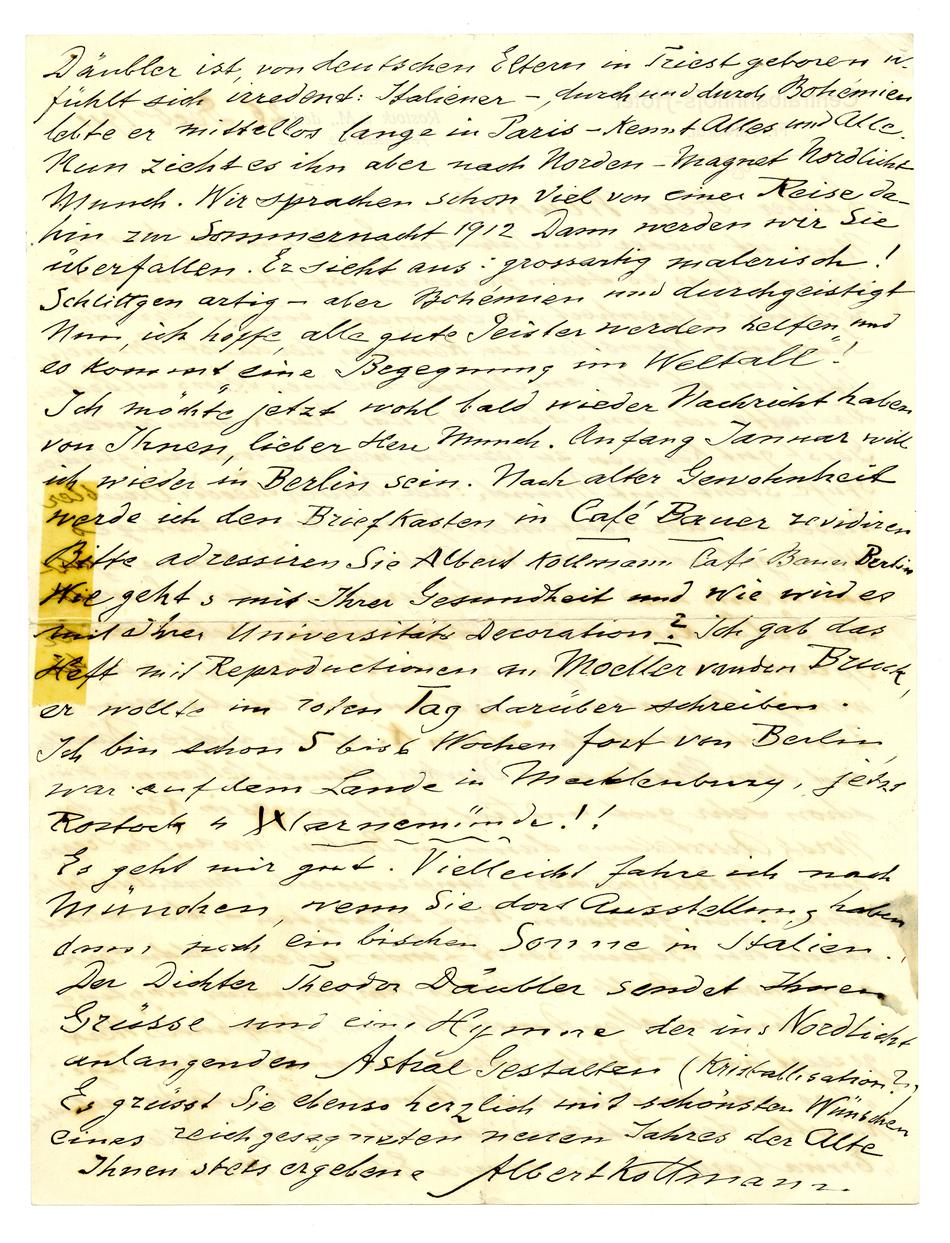 Däubler ist, von deutschen Eltern in Triest geboren u.
fühlt sich irredent: Italiener –, durch und durch Bohémien
lebte er mittellos lange in Paris – Kennt Alles und Alle.
Nun zieht es ihn aber nach Norden – Magnet Nordlicht
Munch. Wir sprachen schon viel von einer Reise da-
hin zur Sommernacht 1912 Dann werden wir Sie
überfallen. Er sieht aus: grossartig malerisch!
Schlittgen artig – aber Bohémien und durchgeistigt
Nun, ich hoffe, alle gute Geister werden helfen und
es kommt eine „Begegnung im Weltall"!
Ich möchte jetzt wohl bald wieder Nachricht haben
von Ihnen, lieber Herr Munch. Anfang Januar will
ich wieder in Berlin sein. Nach alter Gewohnheit
werde ich den Briefkasten in Café Bauer revidiren
Bitte adressiren Sie Albert Kollmann Café Bauer Berlin
Wie geht s mit Ihrer Gesundheit und wie wird es
mit Ihrer Universitäts Decoration? Ich gab das
Heft mit Reproductionen an Moeller van den Bruck,
er wollte im roten Tag darüber schreiben.
Ich bin schon 5 bis 6 Wochen fort von Berlin,
war auf dem Lande in Mecklenburg, jetzt
Rostock u Warnemünde!!
Es geht mir gut. Vielleicht fahre ich nach
München, wenn Sie dort Ausstellung haben
dann noch ein bischen Sonne in Italien.
Der Dichter Theodor Däubler sendet Ihnen
Grüsse und eine Hymne der ins Nordlicht
anlangenden Astral Gestalten (Kristallisation?)
Es grüsst Sie ebenso herzlich mit schönsten Wünschen
eines reichgesegneten neuen Jahres der Alte
Ihnen stets ergebene Albert Kollmann.